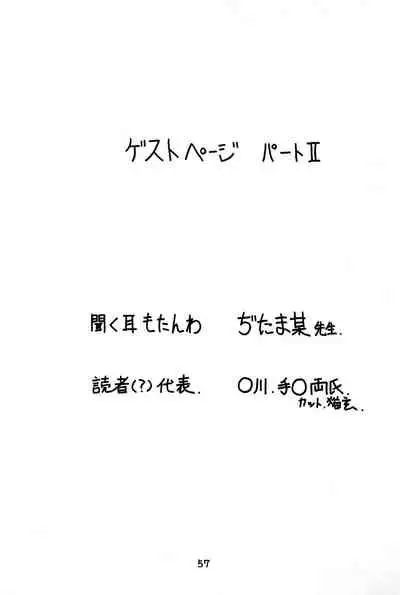 ゲストページ パートⅡ
聞く耳もたんわ ぢたま某先生.
読者(?)代表. 〇川.手〇両氏.
カット.猫玄.
57